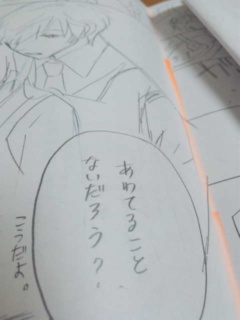 あわてること
ないだろう？
こうだよ。